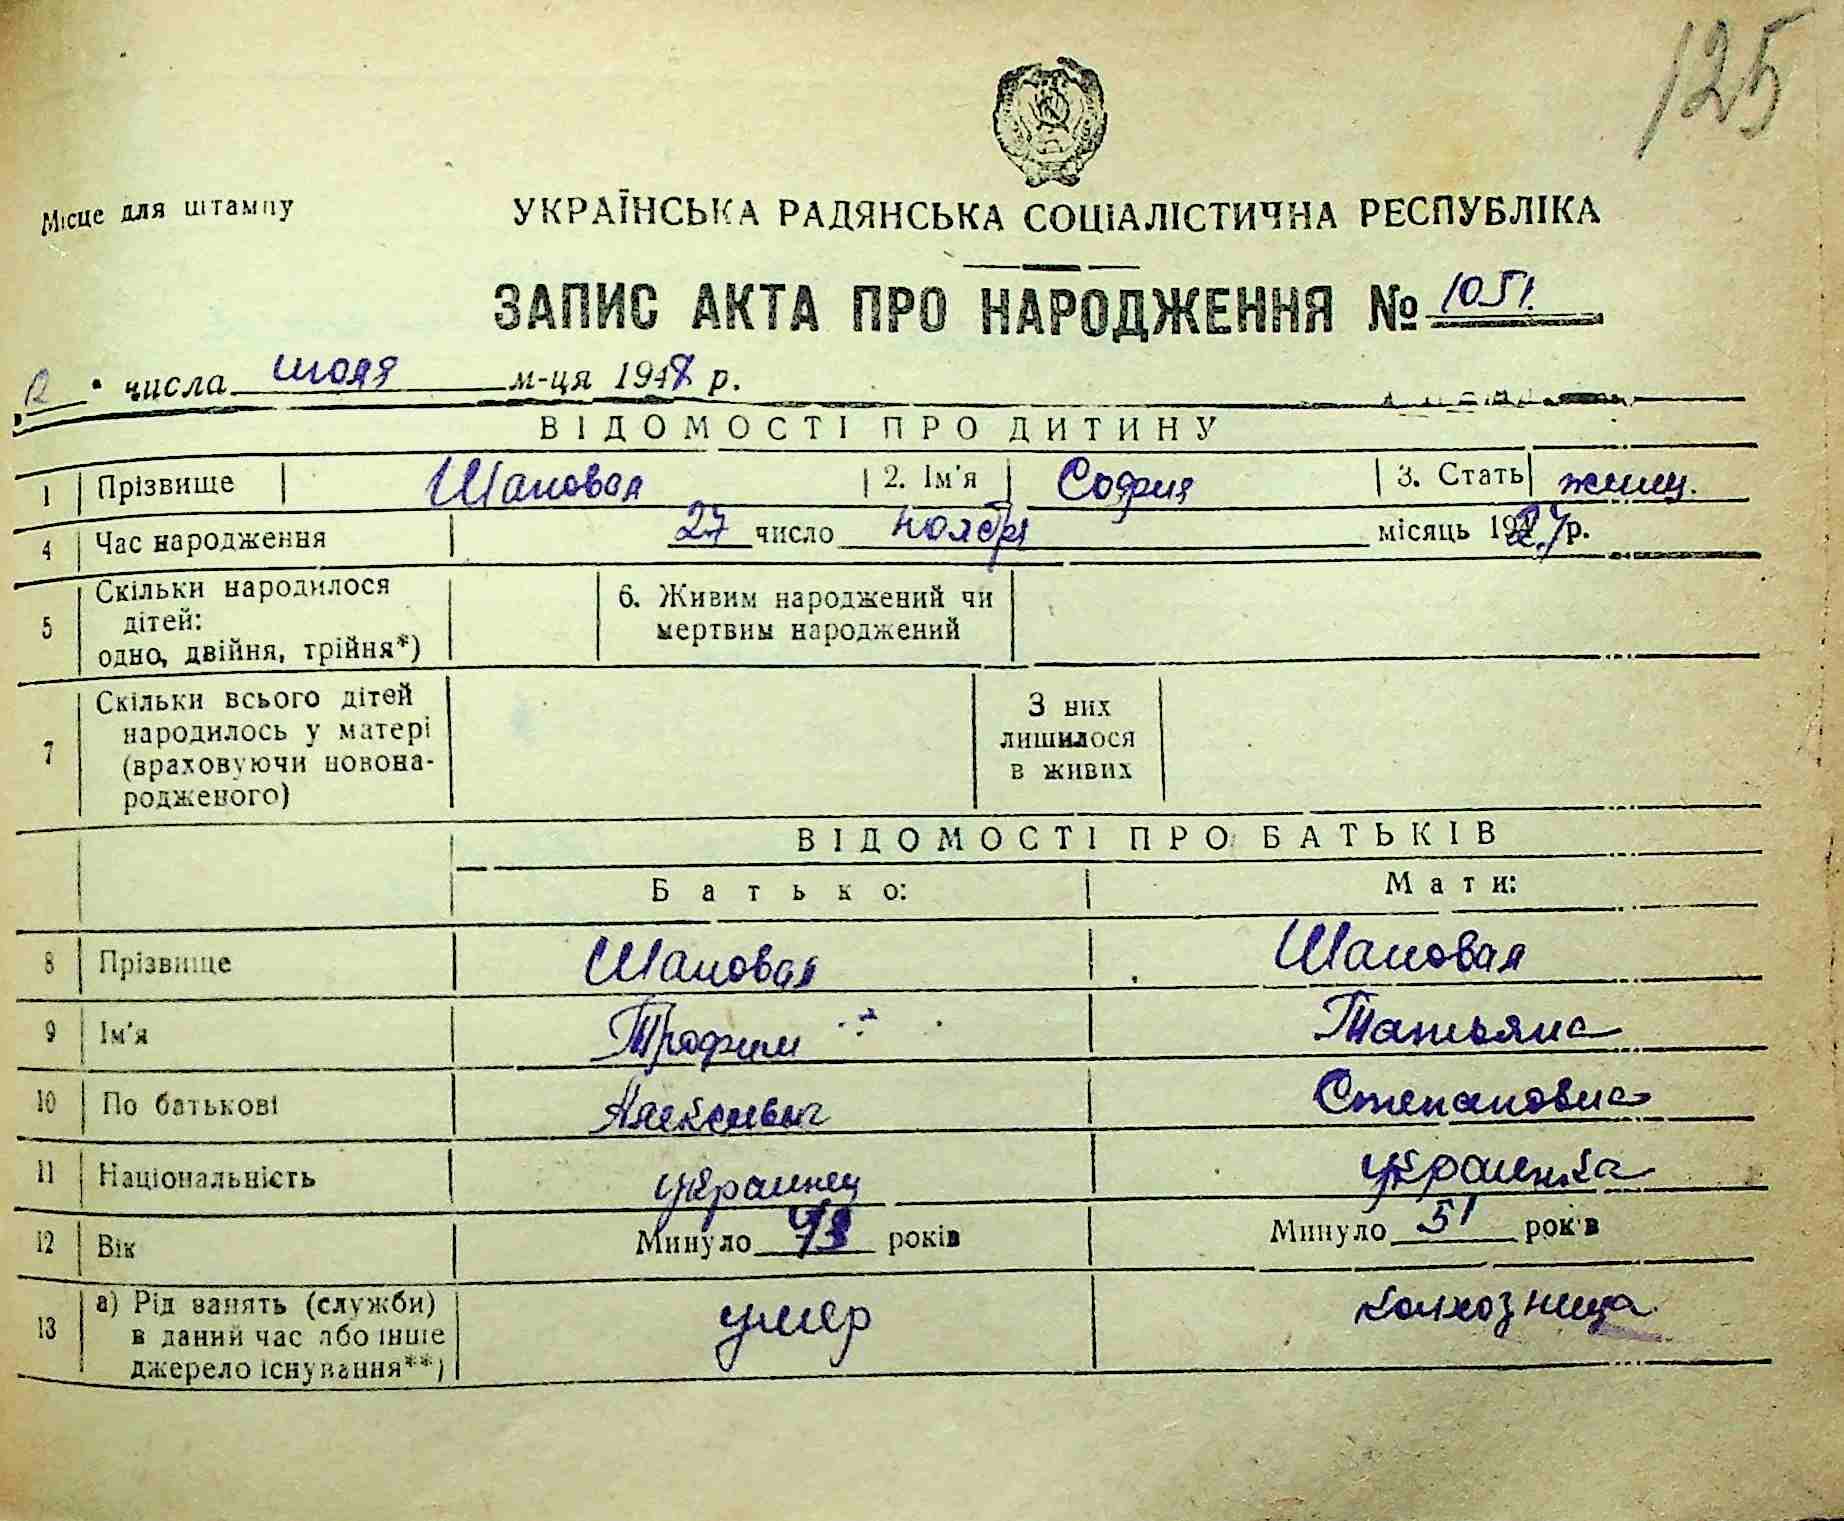 125
Місце для штампу
УКРАЇНСЬКА РАДЯНСЬКА СОЦІАЛІСТИЧНА РЕСПУБЛІКА
ЗАПИС АКТА ПРО НАРОДЖЕННЯ № 1051.
числа июля м-ця 1948 р.
ВІДОМОСТІ ПРО ДИТИНУ
1 Прізвище Шаповал 2. Ім'я София 3. Стать женщ.
4 Час народження 27 число ноября місяць 1927 р.
5 Скільки народилося дітей: одно, двійня, трійня*)
6. Живим народжений чи мертвим народжений
7 Скільки всього дітей народилось у матері (враховуючи новона-родженого)
З них лишилося в живих
ВІДОМОСТІ ПРО БАТЬКІВ
Батько: Мати:
8 Прізвище Шаповал Шаповал
9 Ім'я Трофим Татьяна
10 По батькові Алексеевич Степановна
11 Національність украинец украинка
12 Вік Минуло років Минуло 51 років
13 а) Рід занять (служби) в даний час або інше джерело існування**) умер колхозница